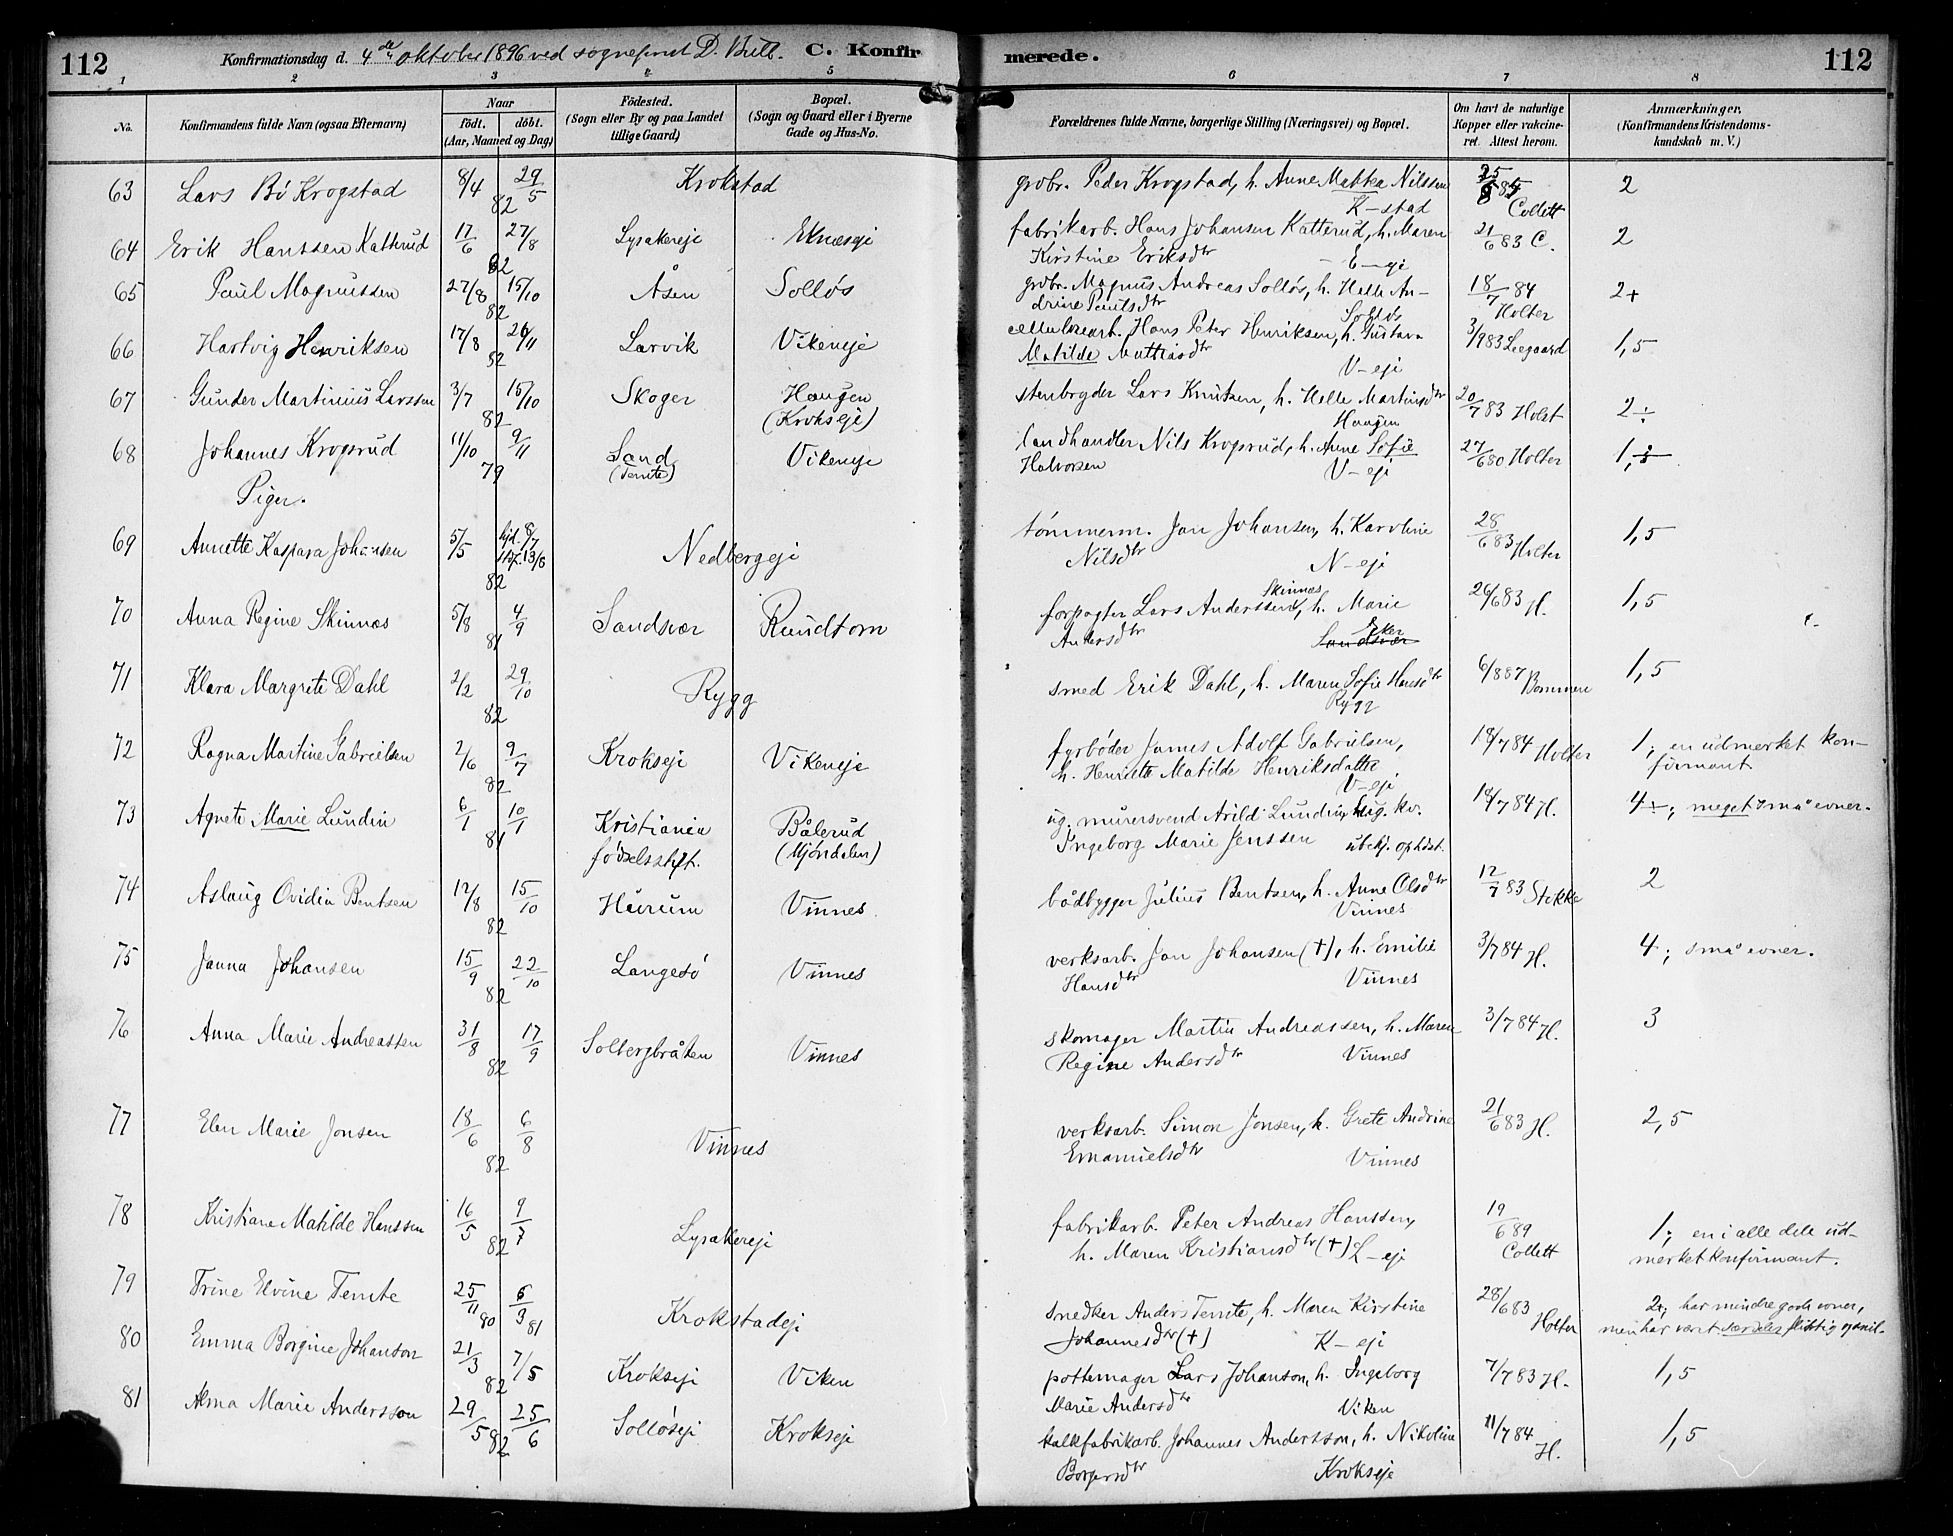 112 Konfirmationsdag d. 4de oktober 1896 ved sogneprest D. C. Konfir
merede. 112
1 2 3 4 5 6 7 8
No.
Konfirmandens fulde Navn (ogsaa Efternavn)
Naar
födt. döbt.
(Aar, Maaned og Dag)
Födested.
(Sogn eller By og paa Landet
tillige Gaard)
Bopæl.
(Sogn og Gaard eller i Byerne
Gade og Hus-No.
Forældrenes fulde Navne, borgerlige Stilling (Næringsvei) og Bopæl.
Om havt de naturlige
Kopper eller vakcine-
ret. Attest herom.
Anmærkninger.
(Konfirmandens Kristendoms-
kundskab m. V.)
63 Lars Bö Krogstad 8/4 29/5 82 Krokstad grdbr. Peder Krogstad, h. Anne Mathea Nilssen Collett 2
K-stad
64 Erik Hanssen Kattrud 17/6 27/8 82 Lysakereje Eknæseje fabrikarb. Hans Johansen Katterud, h. Maren 21/6 83 C. 2
Kirstine Eriksdtr E-eje
65 Paul Magnussen 27/8 15/10 82 Åsen Solløs grdbr. Magnus Andreas Solløs, h. Helle An- 18/7 84 Holter 2+
drine Paulsdtr Solløs
66 Hartvig Henriksen 17/8 26/11 82 Larvik Vikeneje cellulosearb. Hans Peter Henriksen, h. Gustava 3/9 83 Leegaard 1,5
Matilde Mathiasdtr V-eje
67 Gunder Martinius Larssen 3/7 15/10 82 Skoger Haugen stenbryder Lars Knutsen, h. Helle Martinsdtr 20/7 83 Holst 2÷
(Krokseje) Haugen
68 Johannes Krogsrud 11/10 9/11 79 Sand Vikeneje landhandler Nils Krogsrud, h. Anne Sofie 27/6 80 Holter
(Temte) Halvorsen V-eje
Piger.
69 Annette Kaspara Johansen 5/5 hjd. 8/7 82 Nedbergeje tömmerm. Jan Johansen, h. Karoline 28/6 83 Holter 1,5
Nilsdtr N-eje
70 Anna Regine Skinnes 5/8 4/9 81 Sandsvær Rundtom forpagter Lars Anderssen Skinnes, h. Marie 26/6 83 H. 1,5
Andersdtr Sandsvær Eker
71 Klara Margrete Dahl 2/2 29/10 82 Rygg smed Erik Dahl, h. Maren Sofie Hansdtr 6/8 87 1,5
Rygg
72 Ragna Martine Gabrielsen 2/6 9/7 82 Krokseje Vikeneje fyrböder James Adolf Gabrielsen, 18/7 84 Holter 1; en udmerket kon-
h. Henriette Matilde Henriksdatter V-eje firmant
73 Agnete Marie Lundin 6/1 10/1 81 Kristiania Bålerud ug. murersvend Arild Lundin, ug. kv. 18/7 84 H. 4÷; meget små evner.
fødselsstift. (Mjöndalen) Ingeborg Marie Jenssen ubekj. opholdst.
74 Aslaug Ovidia Bentsen 12/8 15/10 82 Hurum Vinnes bådbygger Julius Bentsen, h. Anne Olsdtr 12/7 83 Stokke 2
Vinnes
75 Janna Johansen 15/9 22/10 82 Langesö Vinnes verksarb. Jan Johansen (†), h. Emilie 3/7 84 H. 4; små evner.
Hansdtr Vinnes
76 Anna Marie Andreassen 31/8 17/9 82 Solbergbråten Vinnes skomager Martin Andreassen, h. Maren 3/7 84 H. 3
Regine Andersdtr Vinnes
77 Elen Marie Jonsen 18/6 6/8 82 Vinnes verksarb. Simon Jonsen, h. Grete Andrine 21/6 83 H. 2,5
Emanuelsdtr Vinnes
78 Kristiane Matilde Hanssen 16/5 9/7 82 Lysakereje fabrikarb. Peter Andreas Hanssen, 19/6 89 Collett 1; en i alle dele ud-
h. Maren Kristiansdtr (†) L-eje merket konfirmant.
79 Trine Elvine Temte 25/11 80 6/3 81 Krokstadeje snedker Anders Temte, h. Maren Kirstine 28/6 83 Holter 2+; har mindre gode evner,
Johannesdtr (†) K-eje men har vært særdeles flittig
80 Emma Borgine Johanson 21/3 7/5 82 Krokseje Viken pottemager Lars Johanson, h. Ingeborg 7/7 83 H. 1,5
Marie Andersdtr Viken
81 Alma Marie Andersson 29/5 25/6 82 Solløseje Krokseje kalkfabrikarb. Johannes Andersson, h. Nikoline 11/7 84 H. 1,5
Borgersdtr Krokseje